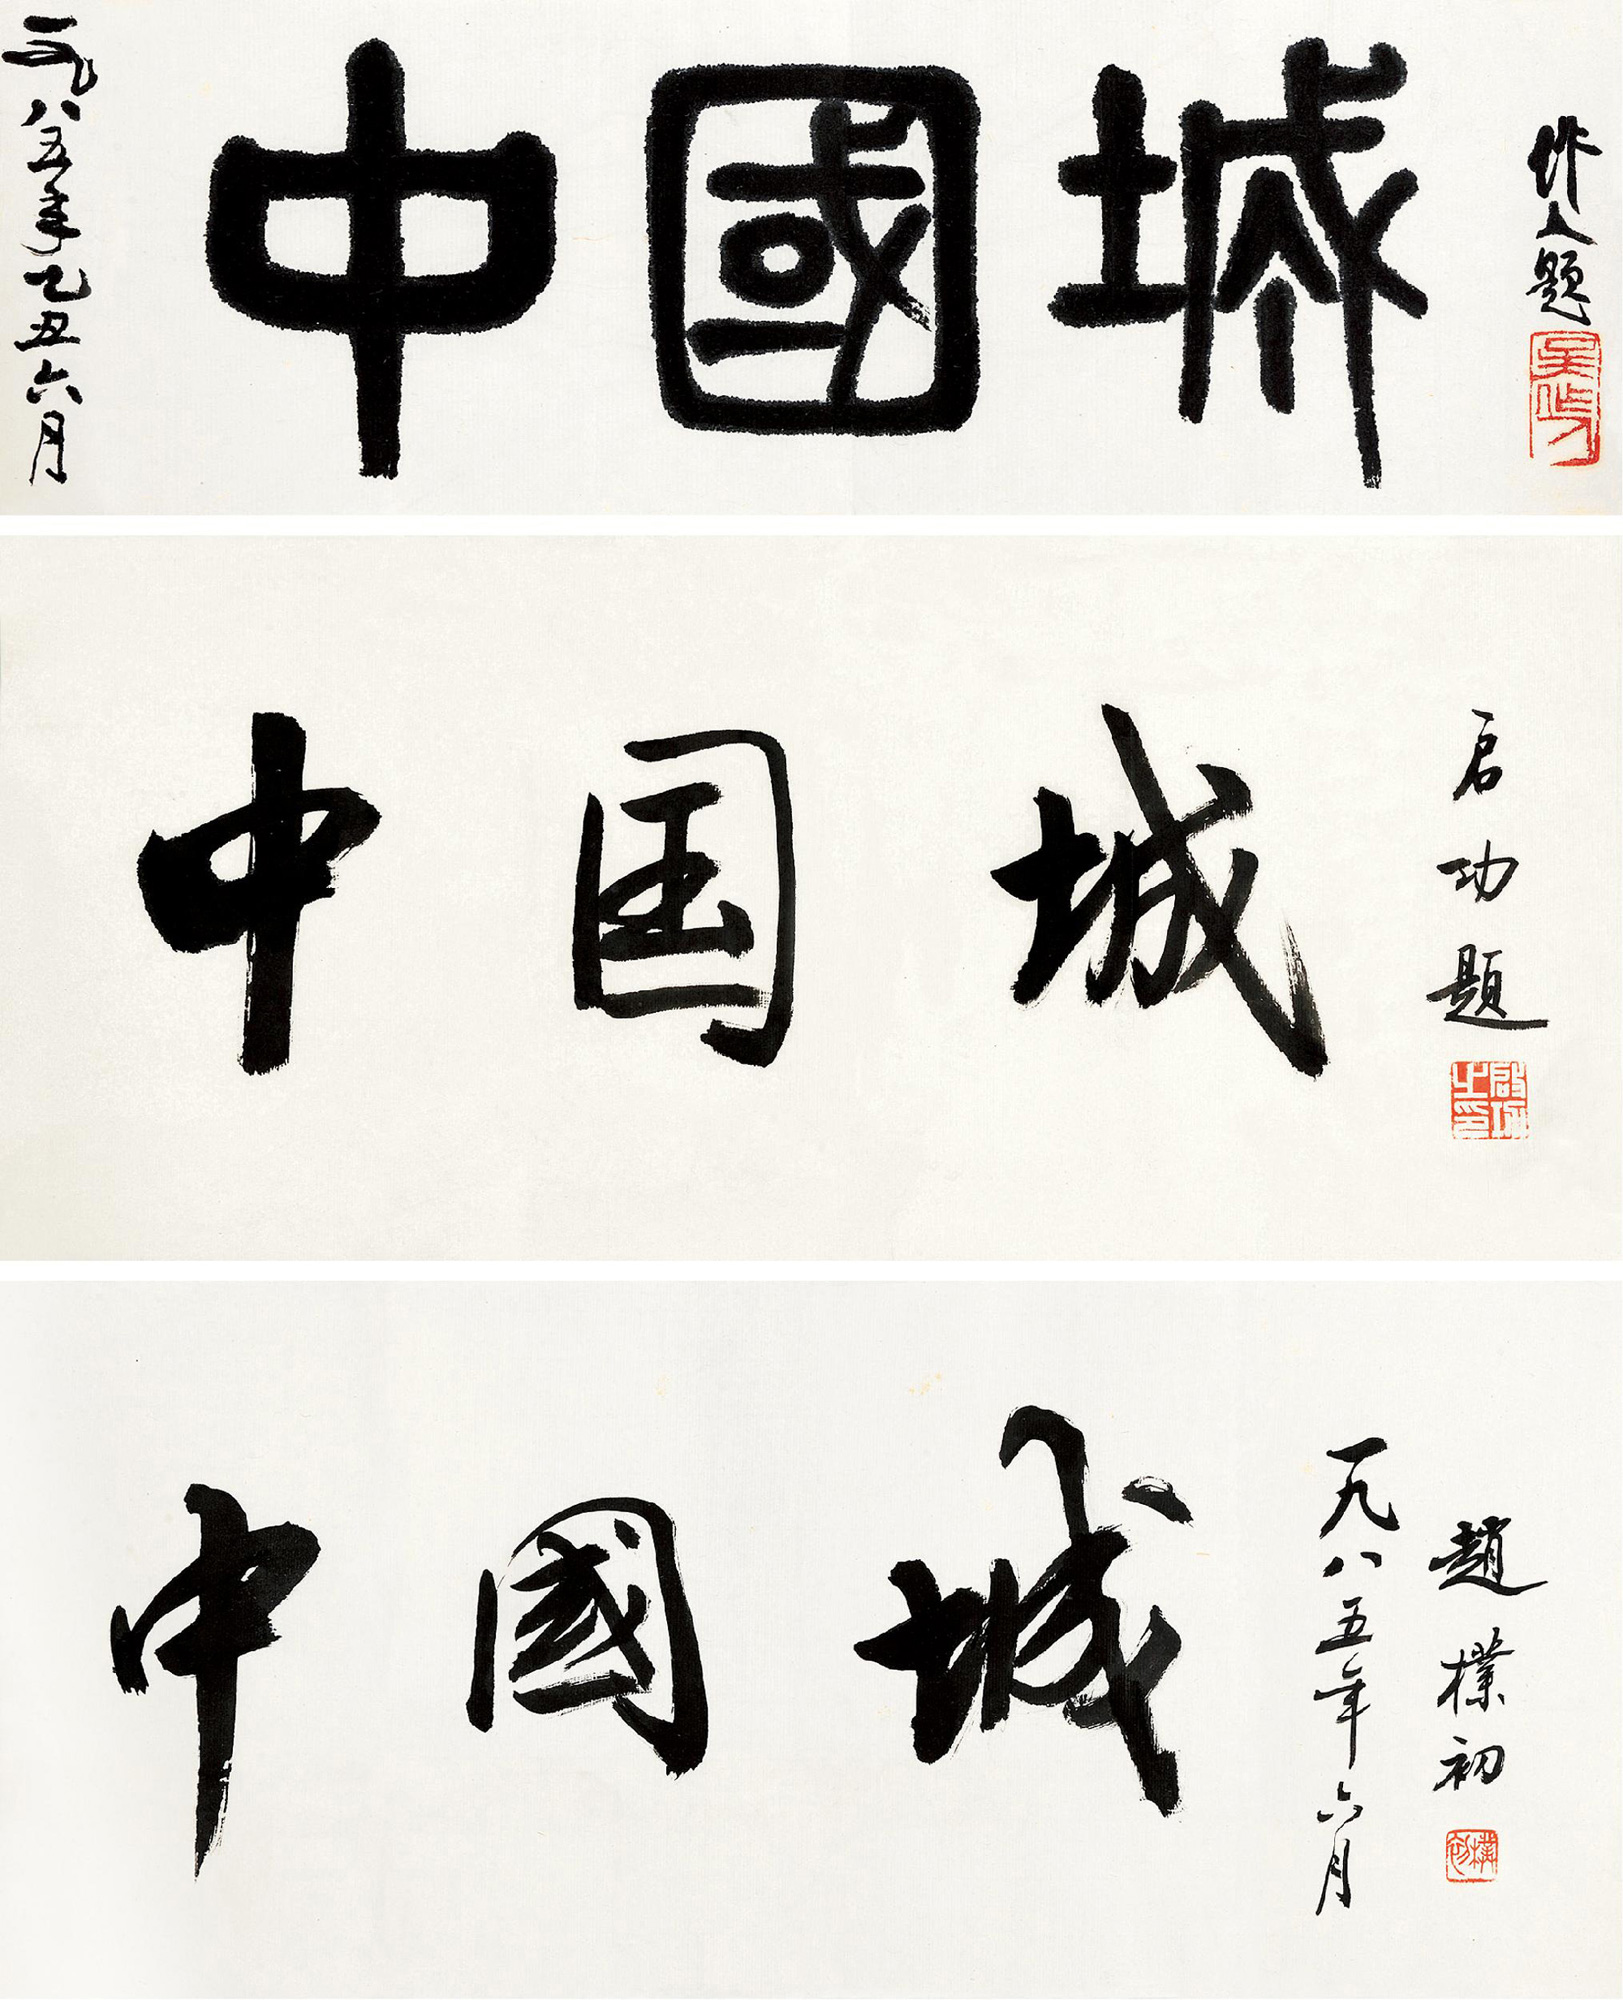 一九八五年乙丑六月
中國城
作人題
吴作人
中国城
启功题
啟功之印
中國城
一九八五年六月
趙樸初
樸初